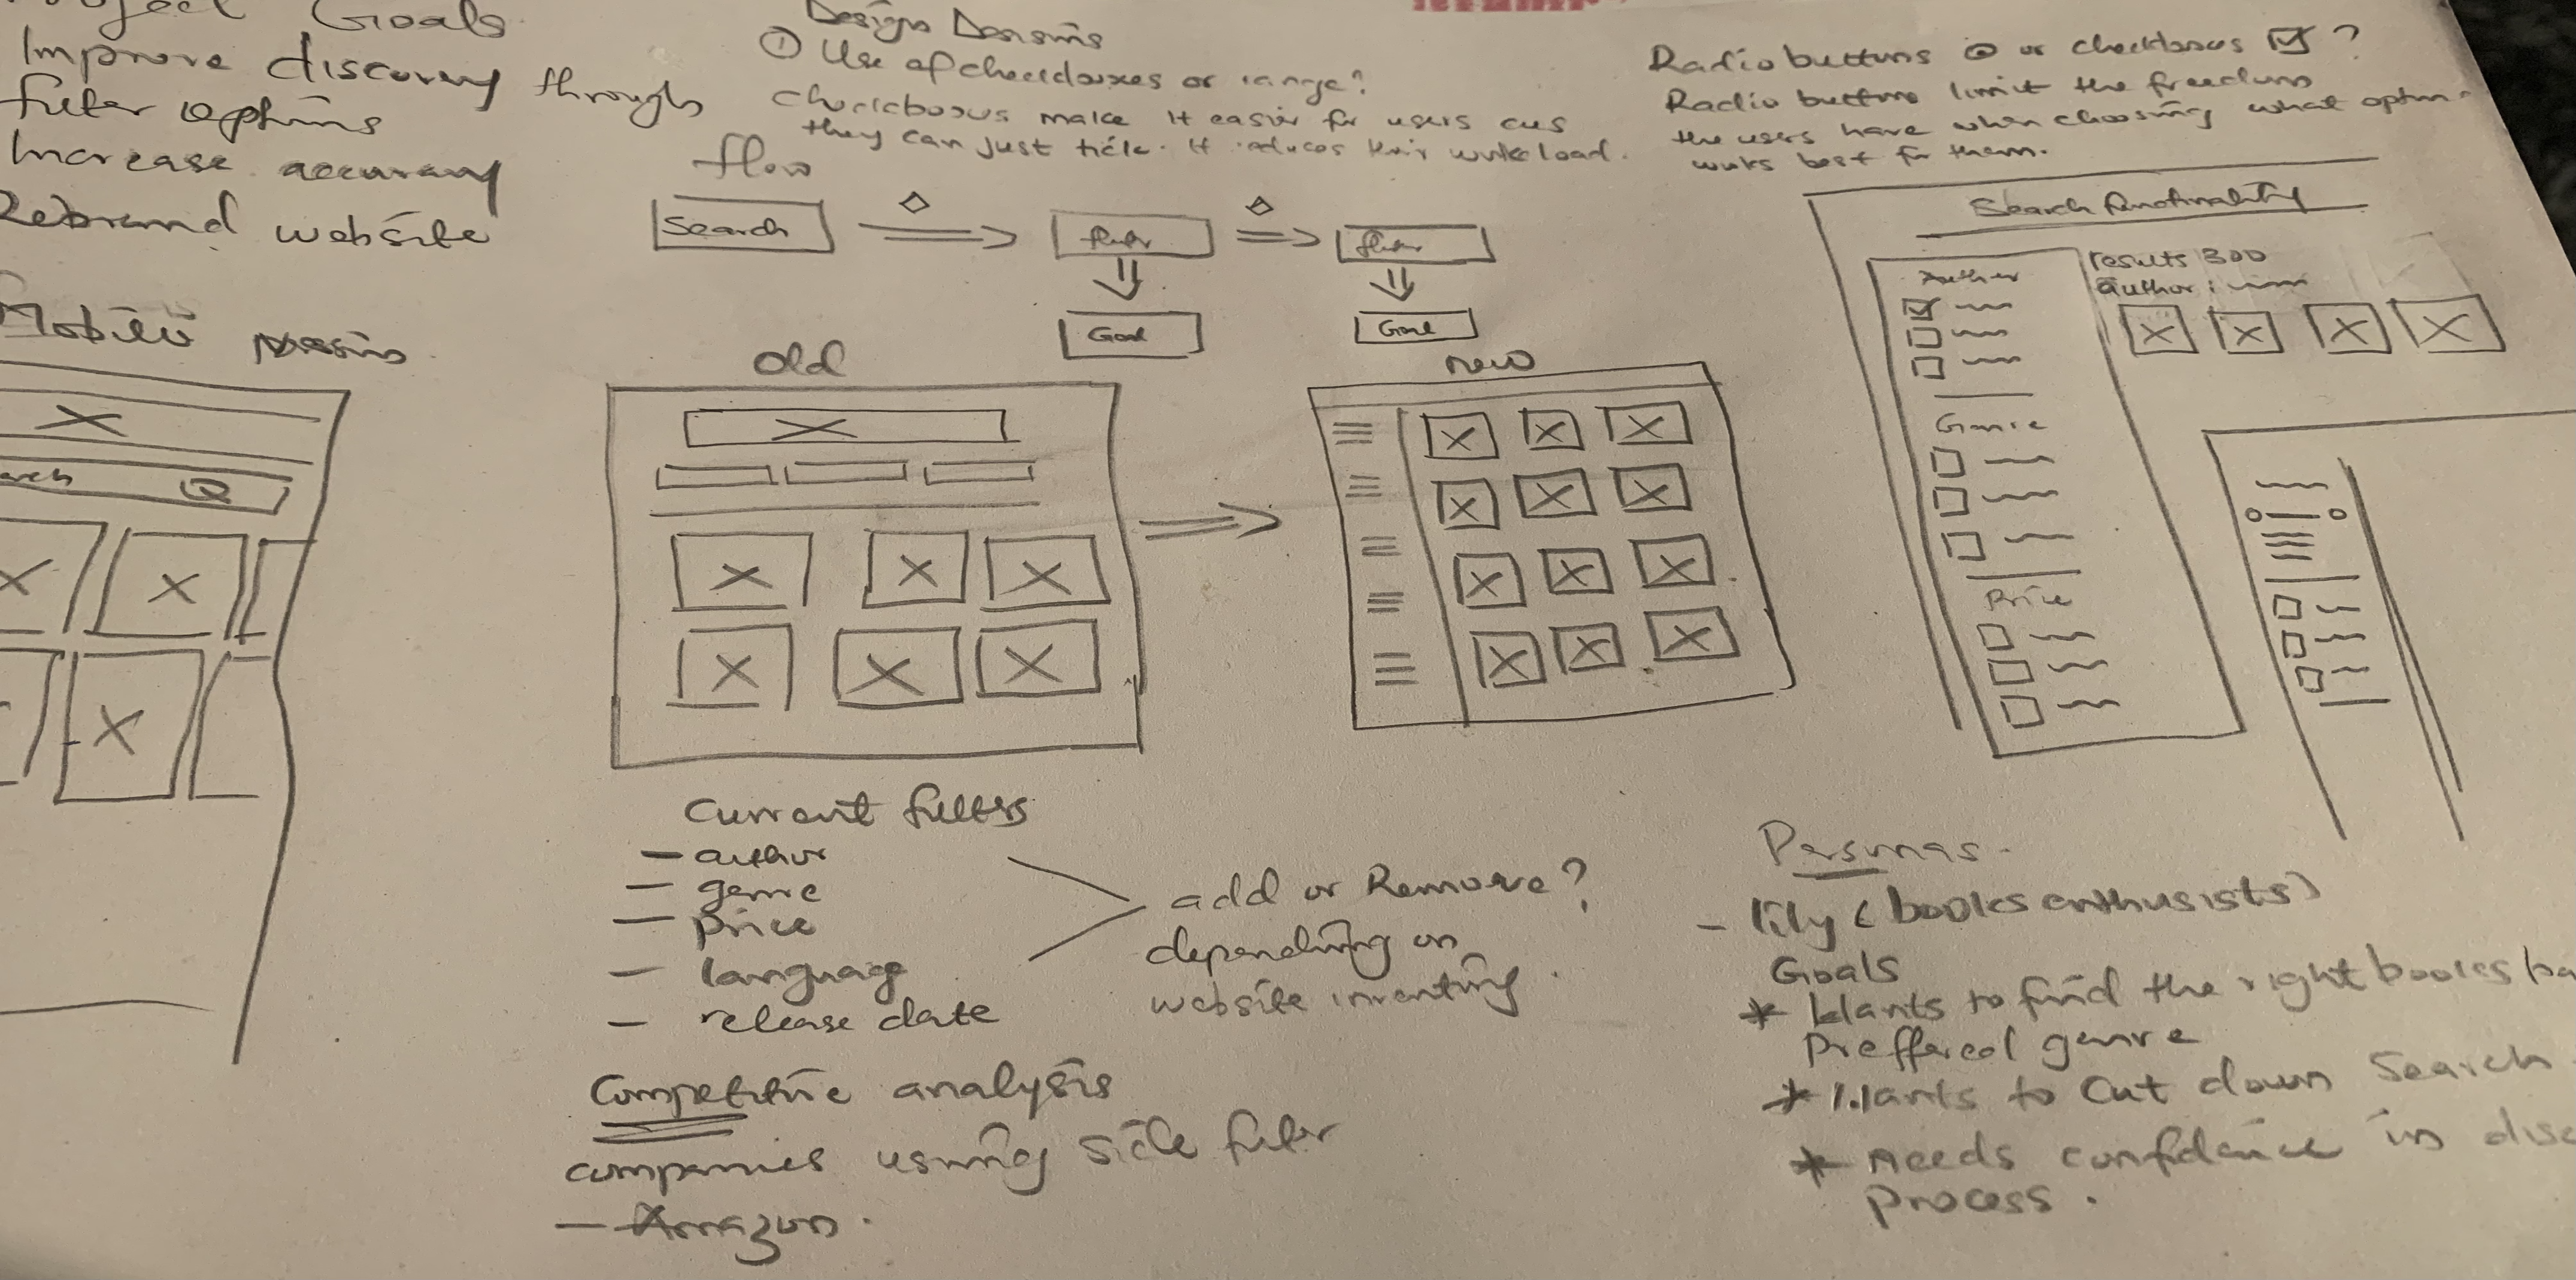 Project Goals
Improve discovery through
filter options
Increase accuracy
Rebrand website
Mobile
arch
Design
① Use of checkboxes or range?
Checkboxes make it easier for users cus
they can just tick. It reduces their workload.
flow
Search
filter
filter
Goal
Goal
Radio buttons or checkboxes ?
Radio buttons limit the freedom
the users have when choosing what option
works best for them.
Search functionality
Author
results 300
author :
Genre
Price
Old
new
Current filters
- author
- genre
- price
- language
- release date
add or Remove?
depending on
website inventory.
Competitive analysis
companies using side filter
- Amazon.
Personas.
- lily (books enthusists)
Goals
* Wants to find the right books ba
Preffered genre
* Wants to Cut down Search
* needs confidence in disc
process.